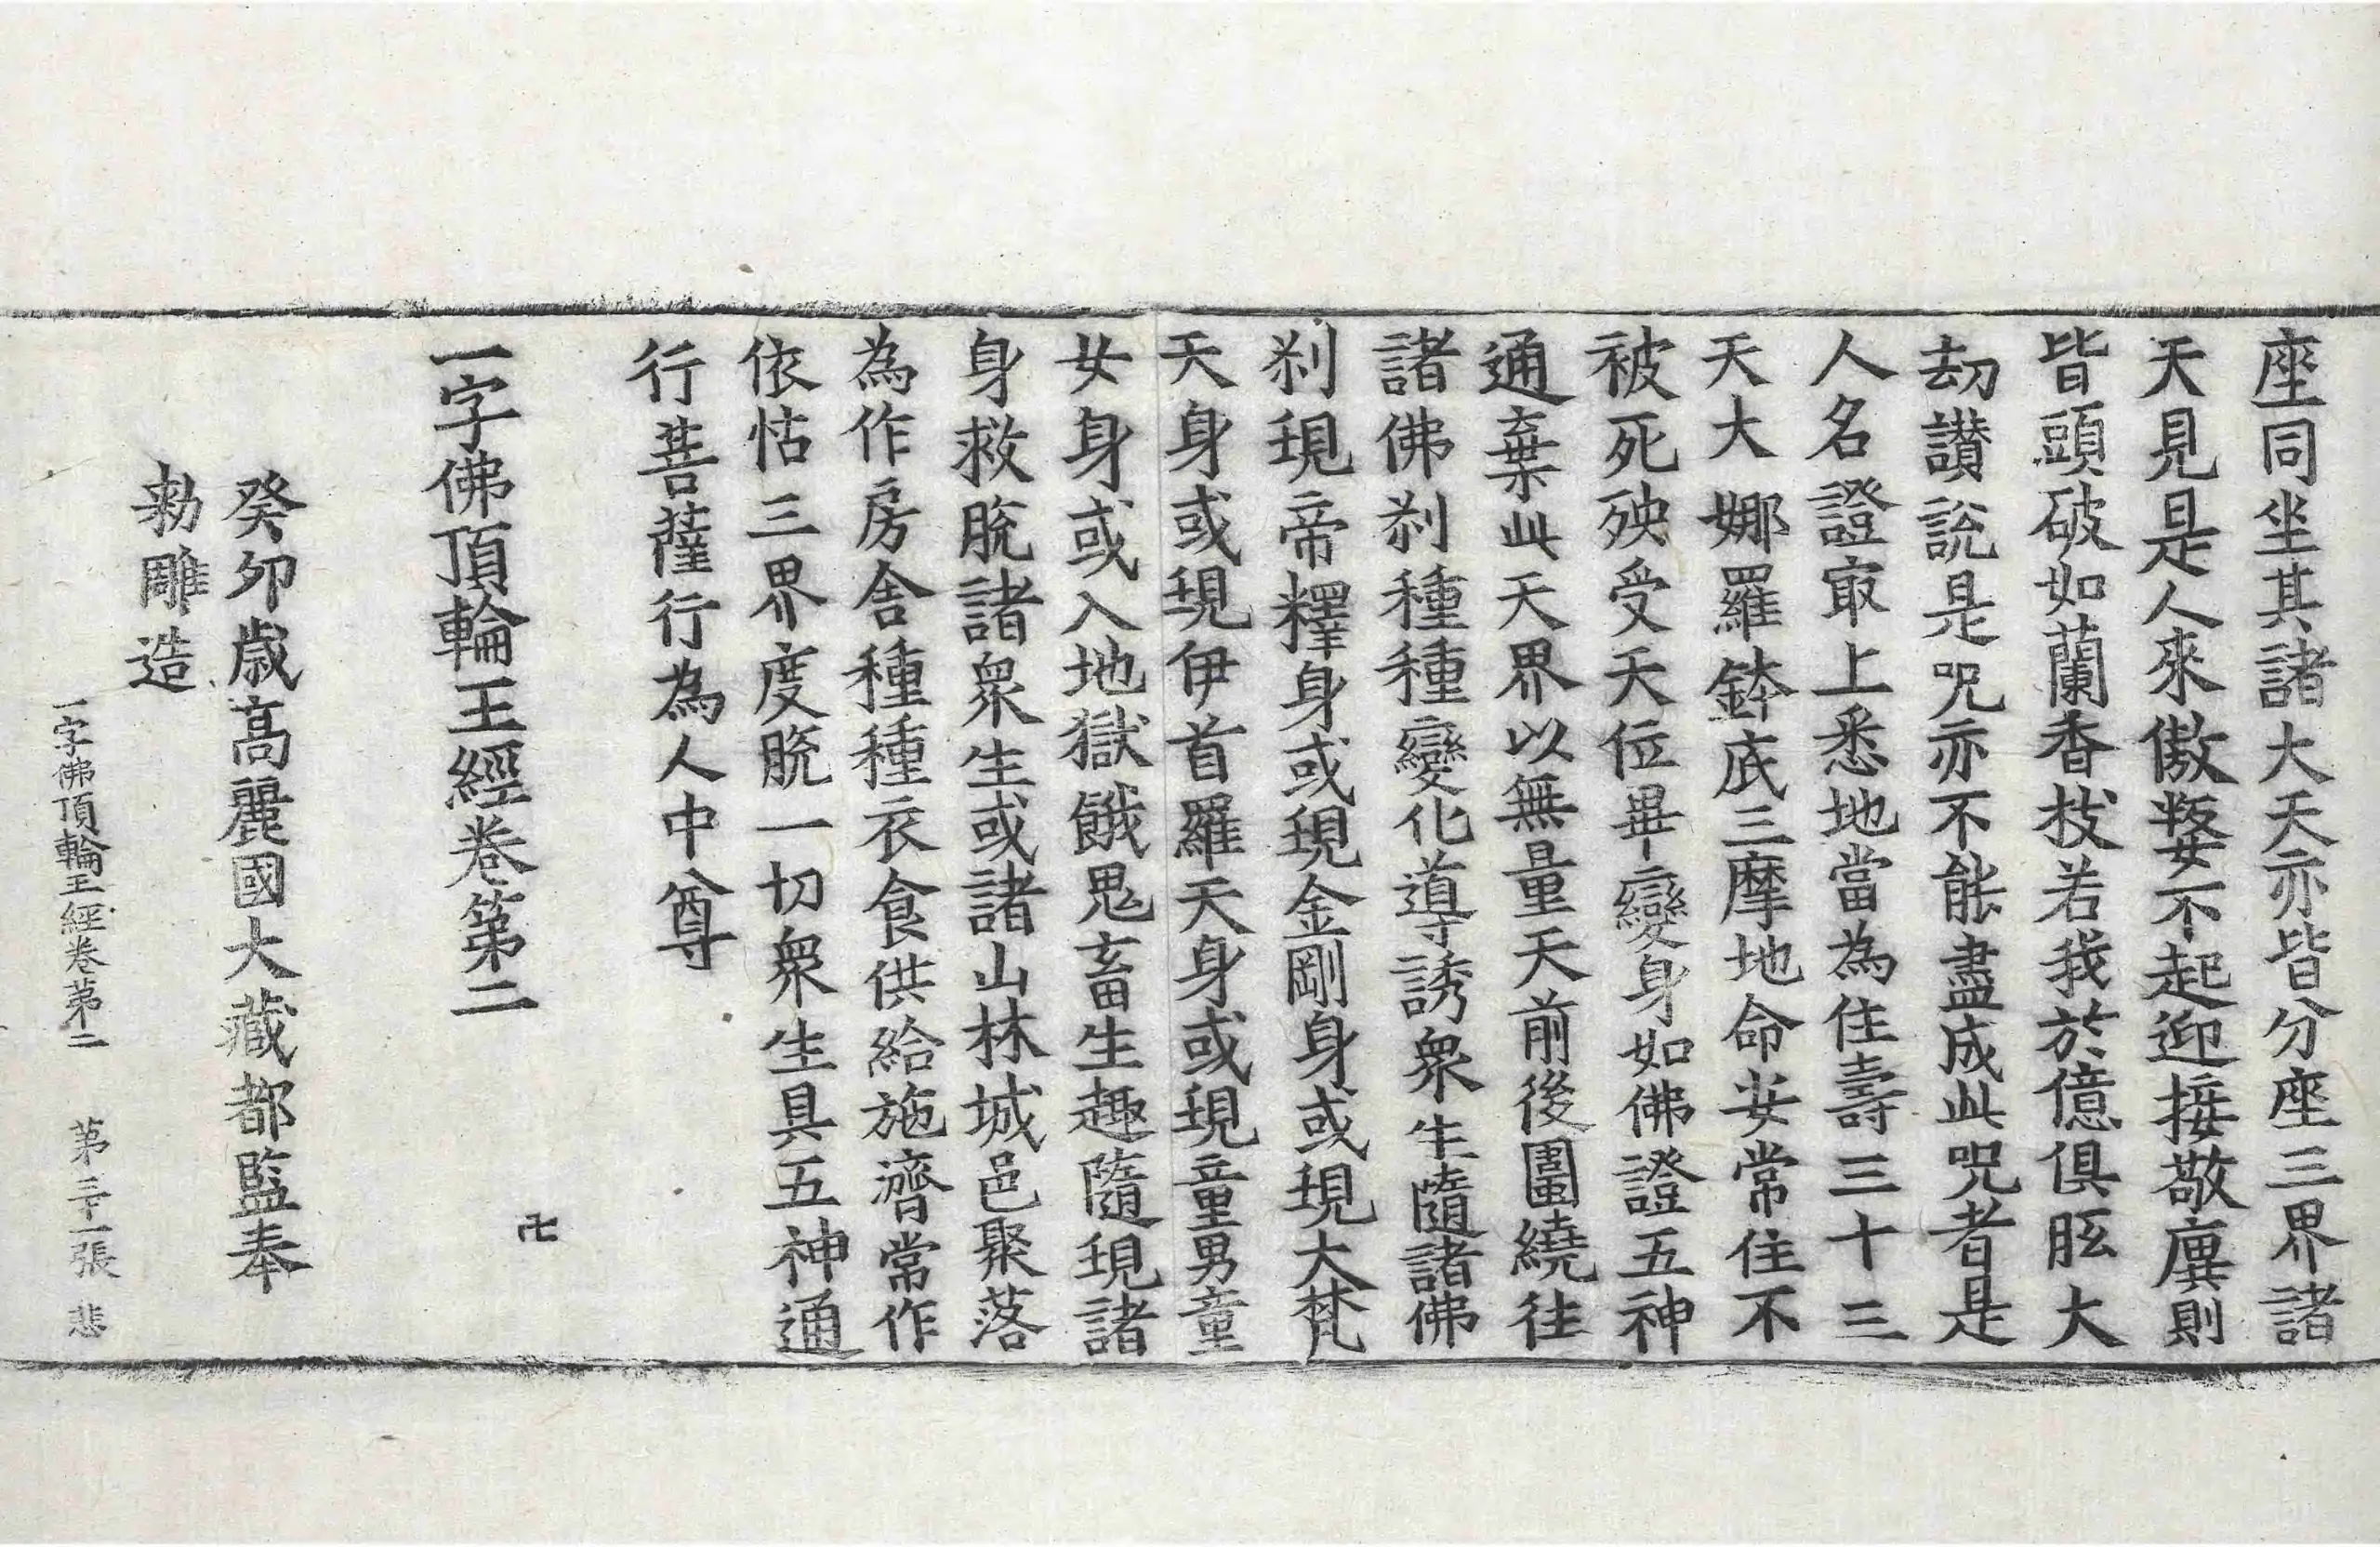 座同坐其諸大天亦皆分座三界諸
天見是人來傲婱不起迎接敬廙則
皆頭破如蘭香枝若我於億俱胝大
劫讃說是呪亦不能盡成此呪者是
人名證㝡上悉地當為住壽三十三
天大娜羅鉢底三摩地命安常住不
被死殃受天位畢變身如佛證五神
通棄此天界以無量天前後圍繞往
諸佛剎種種變化導誘衆生隨諸佛
剎現帝釋身或現金剛身或現大梵
天身或現伊首羅天身或現童男童
女身或入地獄餓鬼畜生趣隨現諸
身救脫諸衆生或諸山林城邑聚落
為作房舍種種衣食供給施濟常作
依怙三界度脫一切衆生具五神通
行菩薩行為人中尊
一字佛頂輪王經卷第二
卍
癸卯歳高麗國大藏都監奉
勑雕造
一字佛頂輪王經卷第二 第三十一張 悲